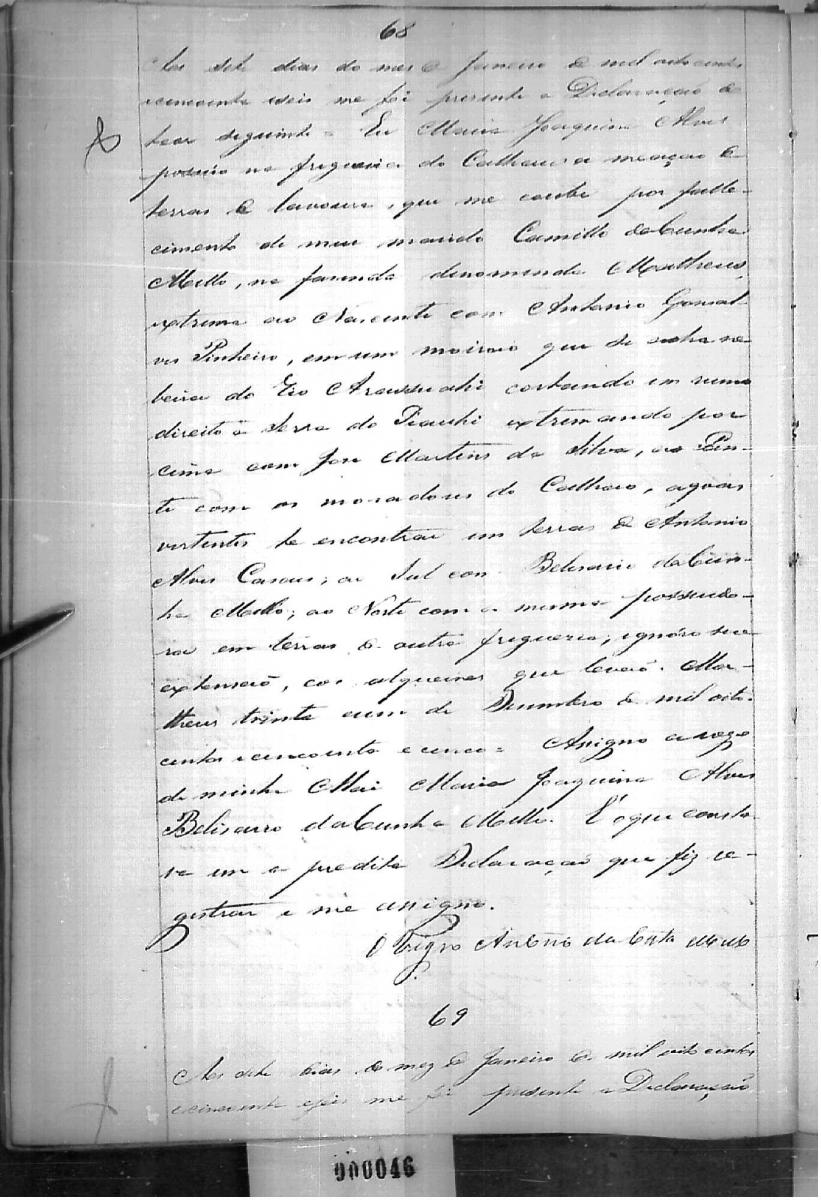 68
Aos sete dias do mes de Janeiro de mil oito centos
e cincoenta e seis me foi presente a Declaração do
teor seguinte = Eu Maria Joaquina Alves
possuio na freguesia do Calhau a meação de
terras de lavoura, que me coube por falle-
cimento de meu marido Camillo da Cunha
Mello, na fazenda denominada Matheus,
extrema ao Nascente com Antonio Gonsal-
ves Pinheiro, em um moirão que se acha na
beira do Rio Arassuahi cortando em rumo
direito a Serra do Piauhi extremando por
cima com José Martins da Silva, ao Poen-
te com os moradores do Calhao, agoas
vertentes te encontrar em terras de Antonio
Alves ; ao Sul com Belisario da Cun-
ha Mello; ao Norte com a mesma possuido-
ra em terras de outra freguezia; ignóro sua
extensaõ, e os alqueires que levará. Ma-
theus trinta e um de Dezembro de mil oito
centos e cincoenta e cinco = Assigno a rogo
de minha Mai Maria Joaquina Alves
Belisario da Cunha Mello. É o que consta-
va em a predita Declaração que fiz re-
gistrar e me assigno.
O Vigro Antonio da Costa Mello
69
Aos sete dias do mez de Janeiro de mil oito centos
e cincoenta e seis me foi presente a Declaração
000046